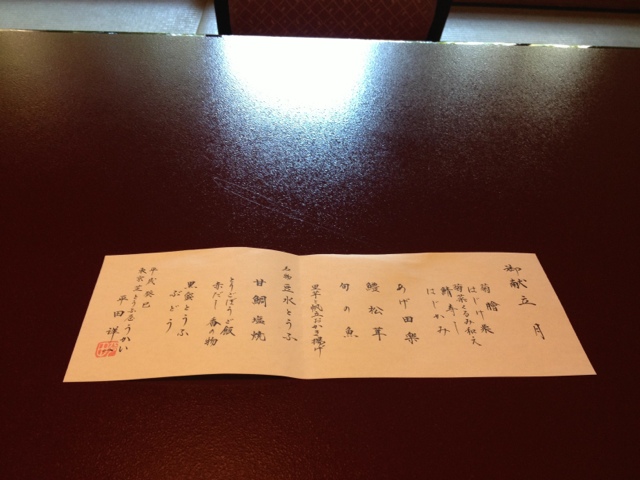 御献立 月
菊膾
はじけ栗
春菊くるみ和え
鯖寿し
はじかみ
あげ田楽
鱧松茸
旬の魚
里芋と帆立おかき揚げ
名物 豆水とうふ
甘鯛塩焼
とりごぼうご飯
赤だし 香の物
黒蜜とうふ
ぶどう
平成 癸巳
東京芝とうふ屋うかい
平田 祥